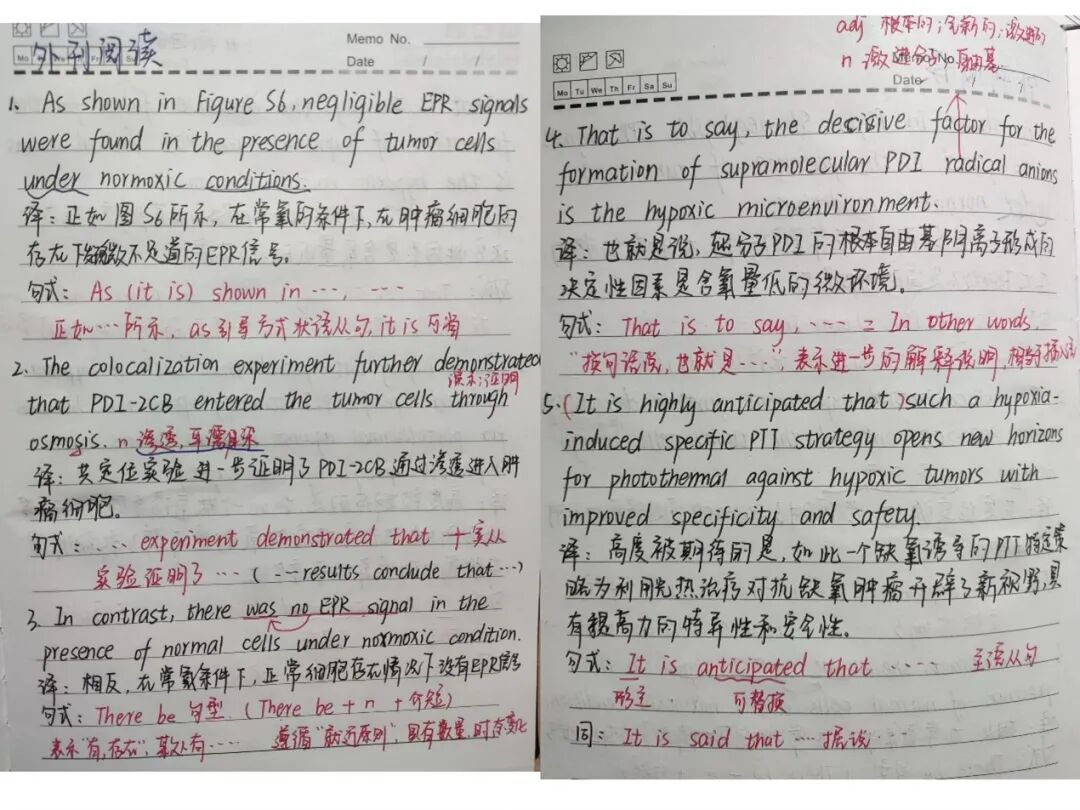 外刊阅读
Memo No.
Date / /
Mo Tu We Th Fr Sa Su
1. As shown in Figure S6, negligible EPR signals
were found in the presence of tumor cells
under normoxic conditions.
译：正如图S6所示，在常氧的条件下，在肿瘤细胞的
存在下微不足道的EPR信号。
句式：As (it is) shown in ···, ···
正如···所示，as引导方式状语从句，it is可省
2. The colocalization experiment further demonstrated
演示；证明
that PDI-2CB entered the tumor cells through
osmosis. n 渗透，耳濡目染
译：共定位实验进一步证明了PDI-2CB通过渗透进入肿
瘤细胞。
句式：··· experiment demonstrated that + 宾从
实验证明了···（---results conclude that ···）
3. In contrast, there was no EPR signal in the
presence of normal cells under normoxic condition.
译：相反，在常氧条件下，正常细胞存在情况下没有EPR信号
句式：There be 句型.（There be + n + 介短）
表示"有，存在"，某处有···· 遵循"就近原则"，具有数量，时态变化
adj 根本的；全新的；激进的
n 激进分子 自由基
No.
Date / /
Mo Tu We Th Fr Sa Su
4. That is to say, the decisive factor for the
formation of supramolecular PDI radical anions
is the hypoxic microenvironment.
译：也就是说，超分子PDI的根本自由基阴离子形成的
决定性因素是含氧量低的微环境。
句式：That is to say, ···· = In other words.
"换句话说，也就是····"，表示进一步的解释说明，相当于插入语
5. (It is highly anticipated that) such a hypoxia-
induced specific PTT strategy opens new horizons
for photothermal against hypoxic tumors with
improved specificity and safety.
译：高度被期待的是，如此一个缺氧诱导的PTT特定策
略为利用光热治疗对抗缺氧肿瘤开辟了新视野，具
有提高力的特异性和安全性。
句式：It is anticipated that ···· 主语从句
形主 可替换
同：It is said that ··· 据说